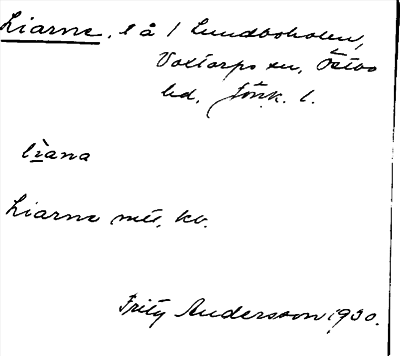 Liarne, l å / Lundboholen,
Voxtorps sn, Östbo
hd, Jönk. l.
lìana
Liarne mte, kv.
Frity Andersson 1930.